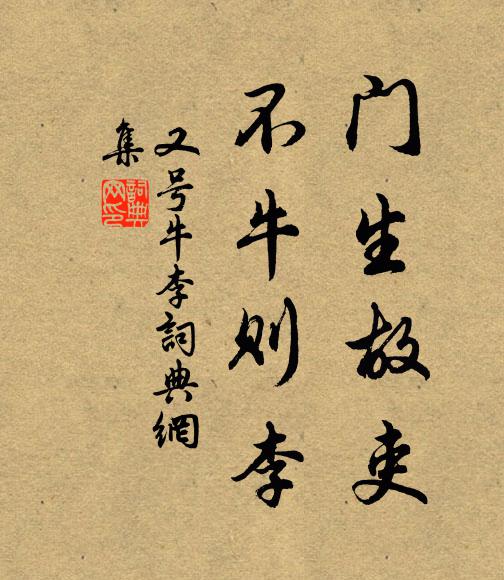 门生故吏
不牛则李
又号牛李詞典網
集
詞典
网印